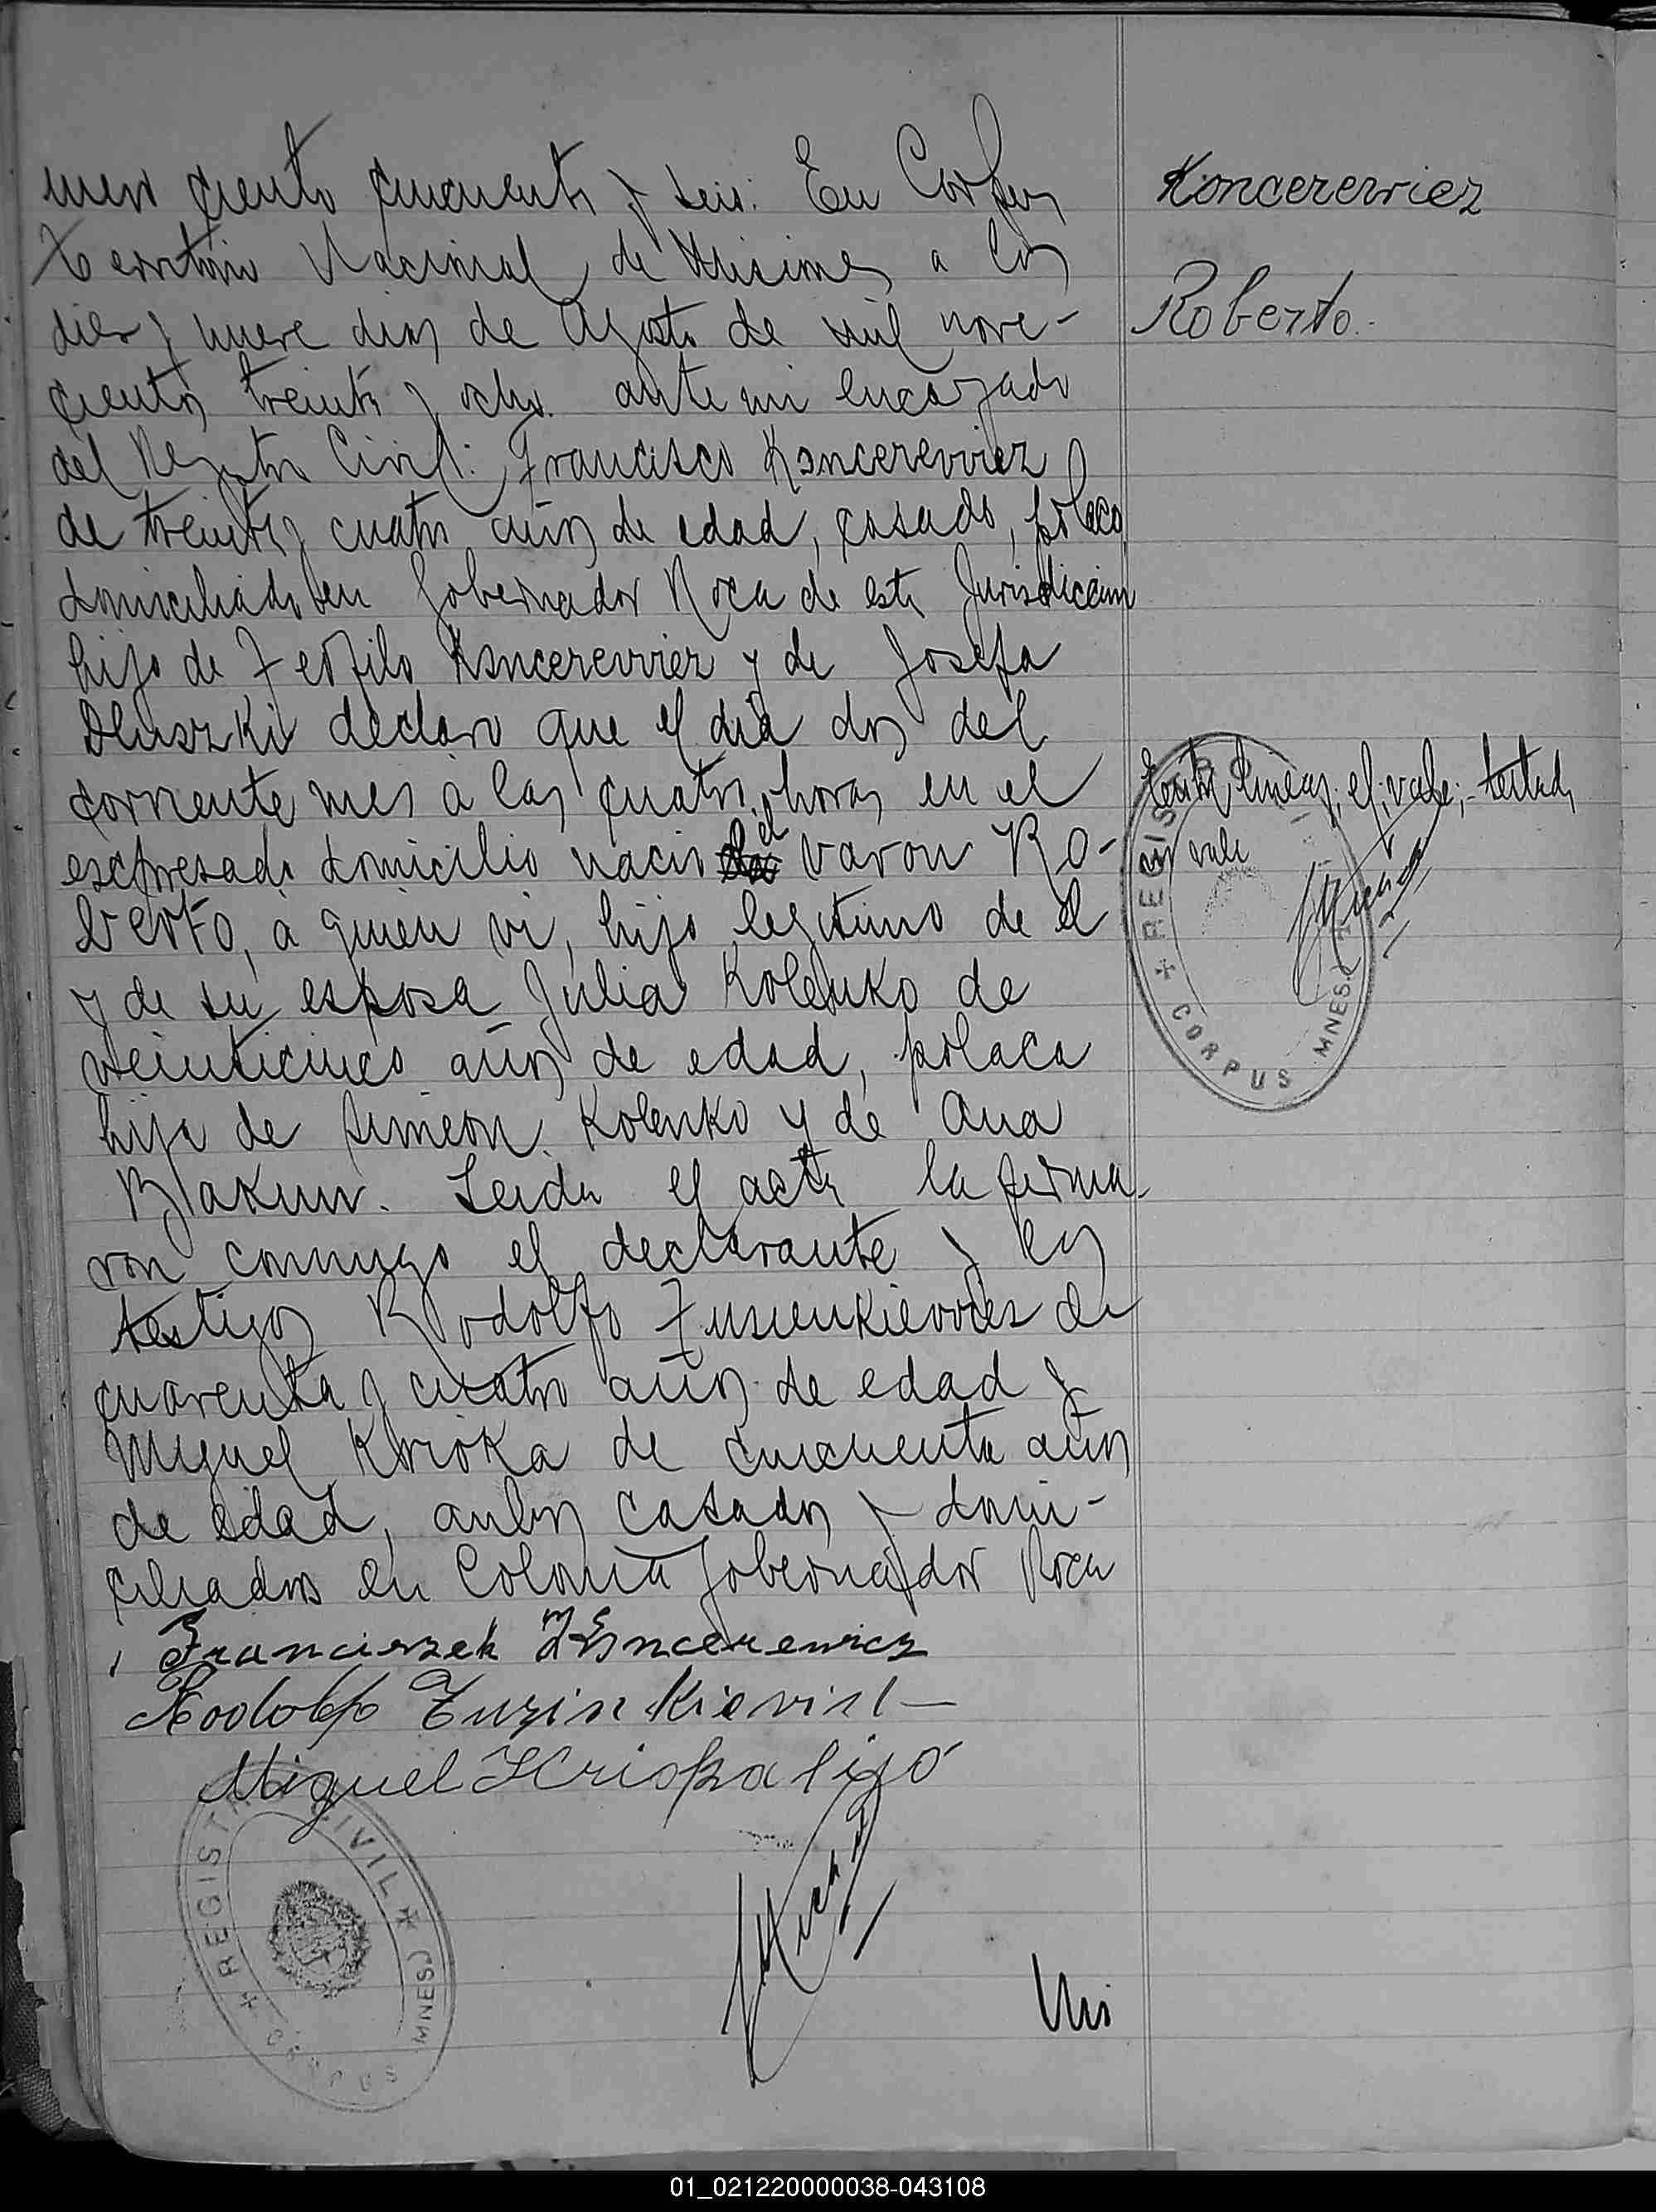 mero ciento cincuenta y seis: En Corpus
Territorio Nacional de Misiones a los
diez y nueve dias de Agosto de mil nove-
cientos treinta y ocho. ante mi encargado
del Registro Civil: Francisco Koncerewiez
de treinta y cuatro años de edad, casado, polaco
domiciliado en Gobernador Roca de esta Jurisdiccion
hijo de Teofilo Koncerewiez y de Josefa
Dluszki declaro que el dia dos del
corriente mes a las cuatro horas en el
expresado domicilio nacio el varon Ro-
berto, a quien vi, hijo legitimo de el
y de su esposa Julia Kolenko de
veinticinco años de edad, polaca
hija de Simeon Kolenko y de Ana
Blakun. Leida el acta la firma-
ron conmigo el declarante y los
testigos Rodolfo Zusienkiewies de
cuarenta y cuatro años de edad y
Miguel Krioka de cincuenta años
de edad, ambos casados y domi-
ciliados en Colonia Gobernador Roca
Franciszek Koncerewicz
Rodolfo
Miguel
REGISTRO CIVIL
CORPUS MNES.)
Nú
Koncerewiez
Roberto.
lineas; el; vale; testad
vale
REGIS
CORPUS MNES.)
01_021220000038-043108